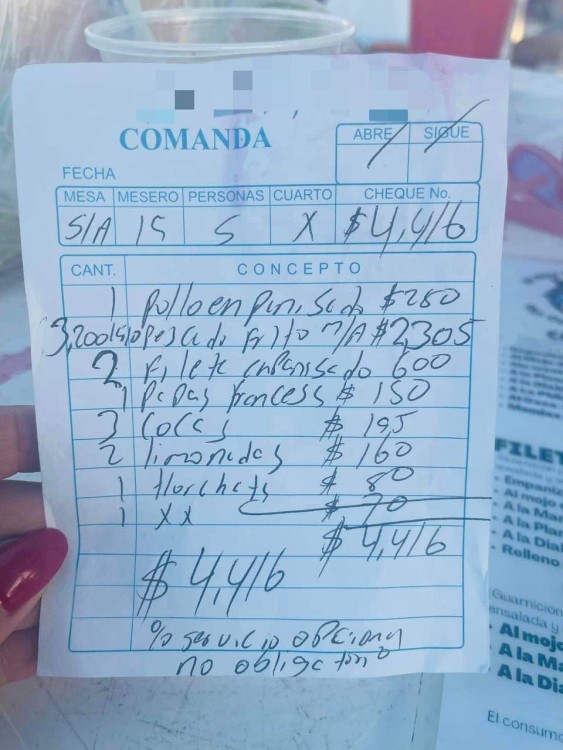 COMANDA
ABRE SIGUE
FECHA
MESA MESERO PERSONAS CUARTO CHEQUE No.
S/A 15 5 X $4,416
CANT. CONCEPTO
1 pollo enpanisado $280
3,200kilo pescado frito M/A $2,305
2 Filete enpanisado 600
1 papas francess $ 150
3 Cocas $ 195
2 limonadas $ 160
1 Horchata $ 80
1 XX $ 70
$ 4,416
$ 4,416
% servicio opcional
no obligatorio
FILET
Empaniz
Al mojo
A la Ma
A la Pla
A la Dia
Relleno
Guarnicion
ensalada y
Al mojo
A la Ma
A la Dia
El consumo